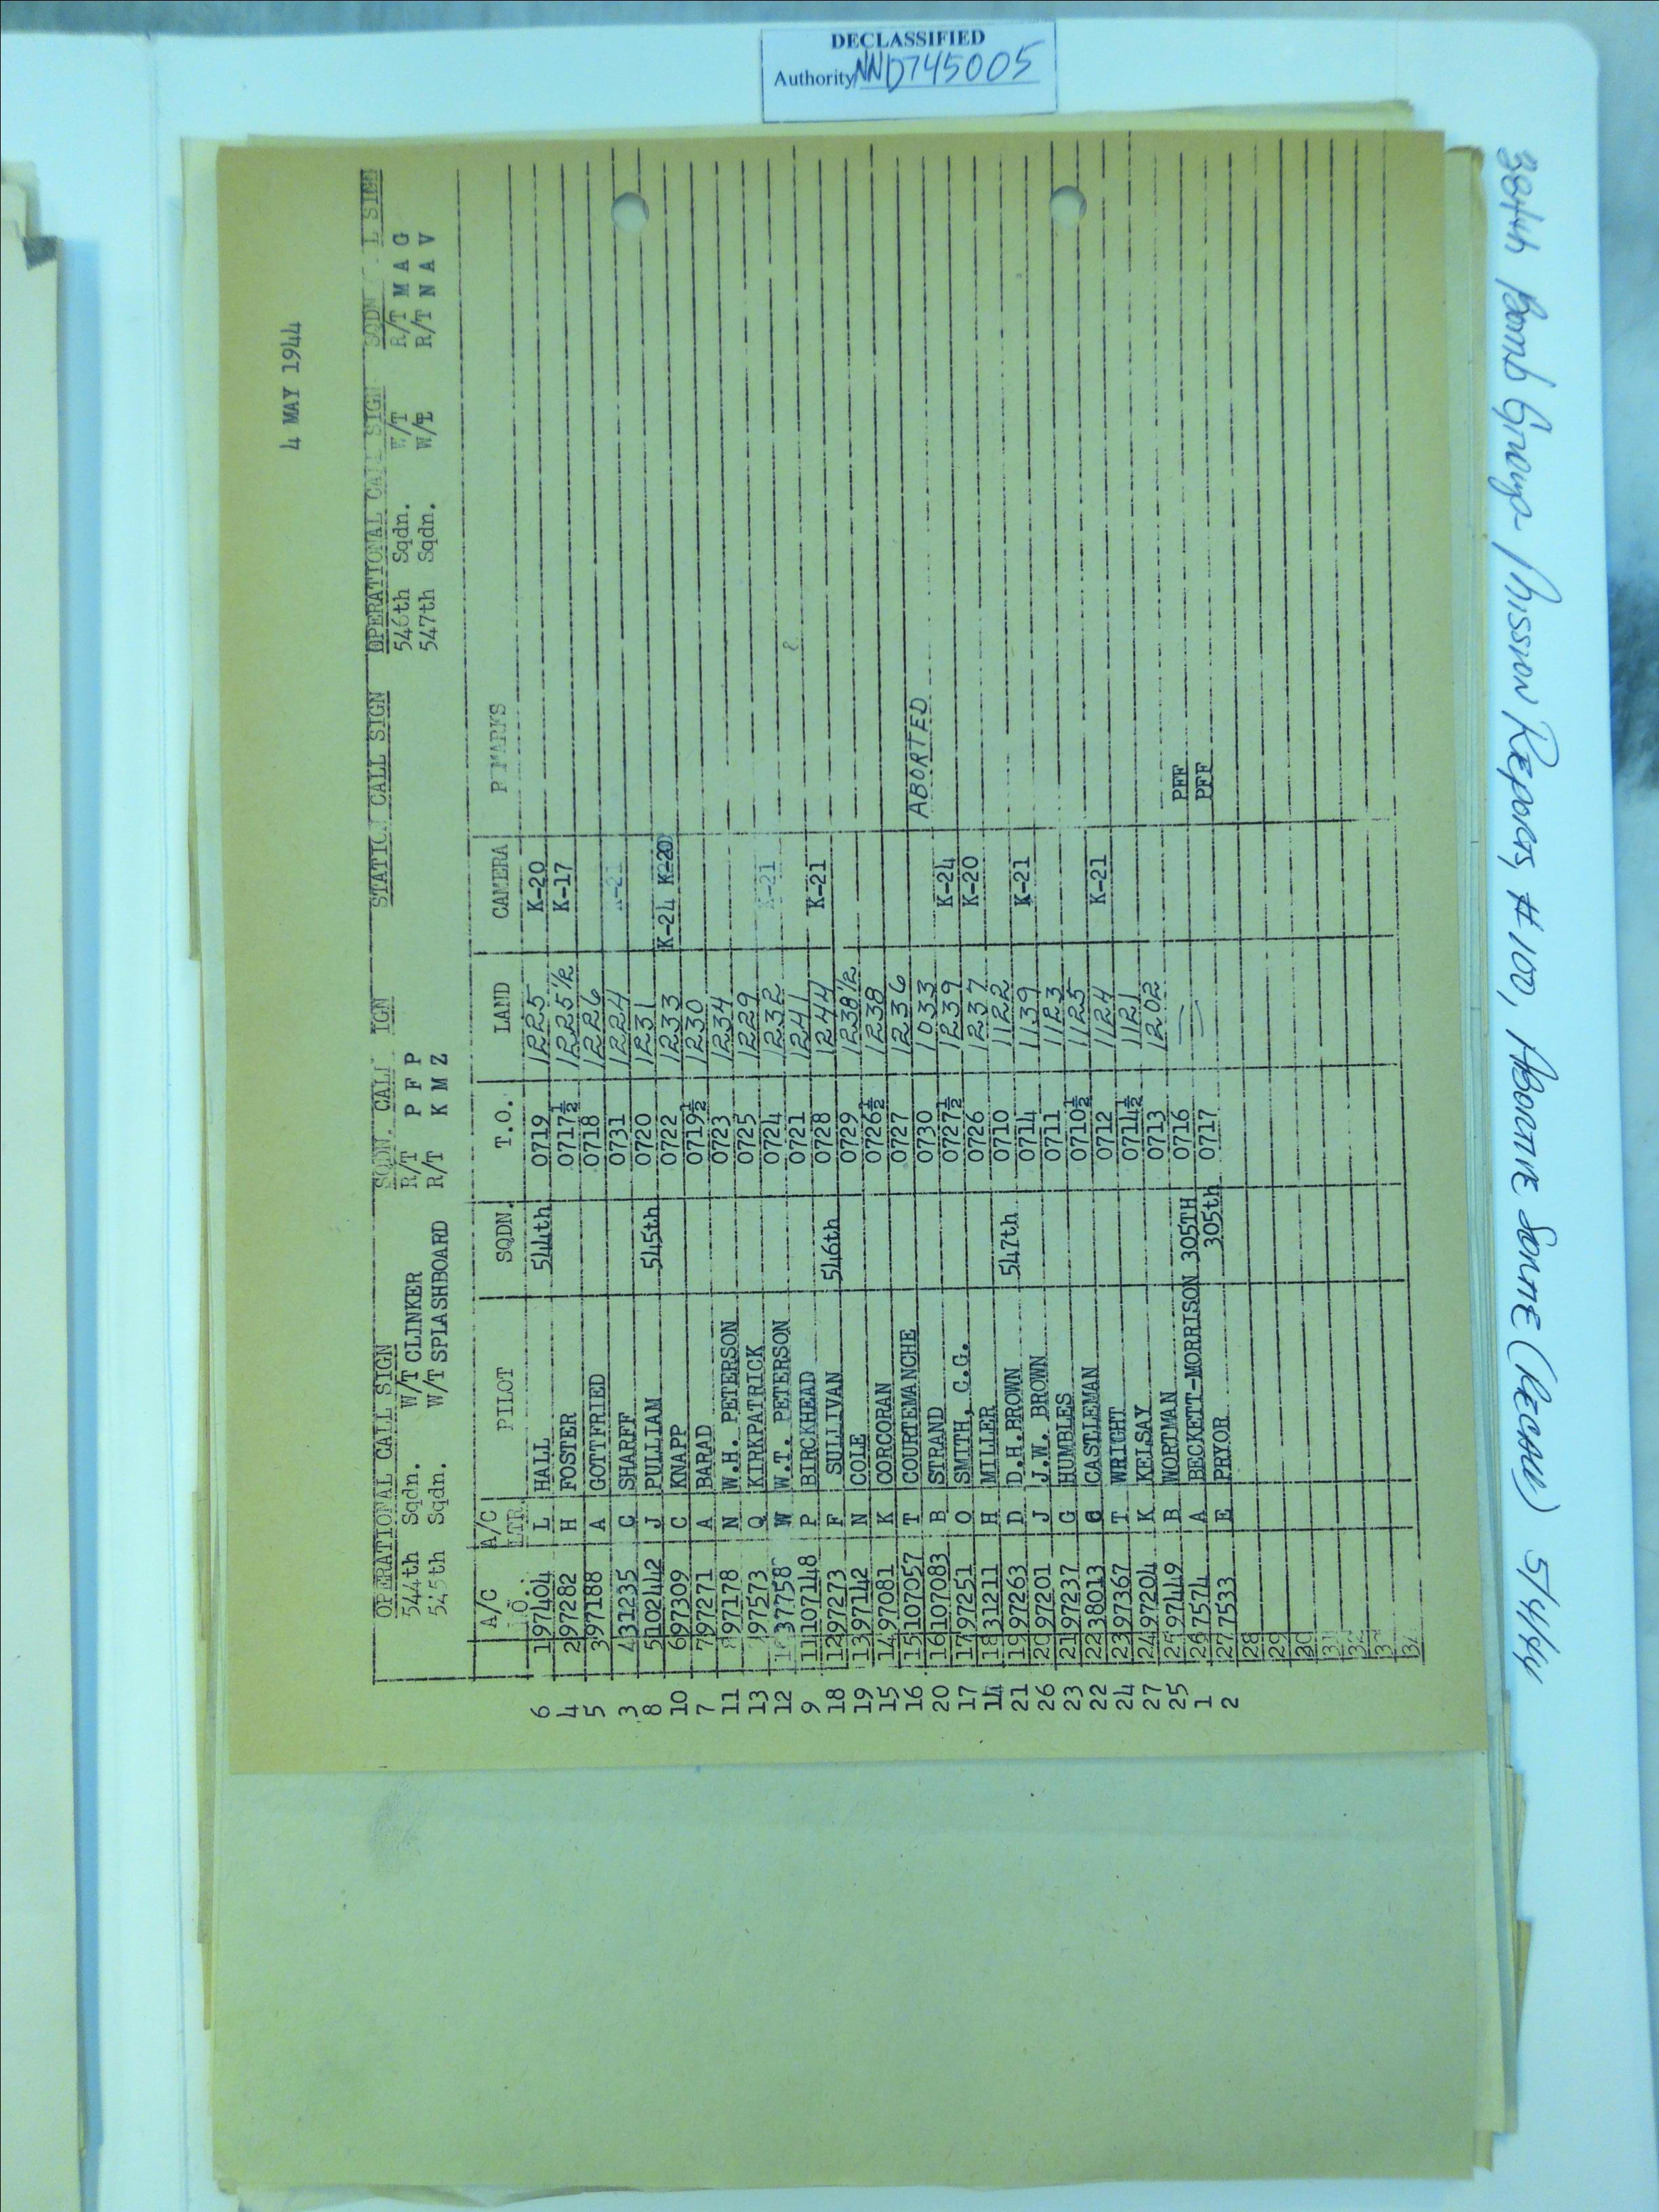 DECLASSIFIED
Authority NND745005
4 MAY 1944
OPERATIONAL CALL SIGN SQDN. CALL IGN STATION CALL SIGN OPERATIONAL CALL SIGN SQDN L SIGN
544th Sqdn. W/T CLINKER R/T P F P 546th Sqdn. W/T R/T M A G
545th Sqdn. W/T SPLASHBOARD R/T K M Z 547th Sqdn. W/T R/T N A V
A/C NO. A/C LTR. PILOT SQDN. T.O. LAND CAMERA REMARKS
6 1 97404 L HALL 544th 0719 1225 K-20
4 2 97282 H FOSTER 0717½ 1225½ K-17
5 3 97188 A GOTTFRIED 0718 1226
3 4 31235 G SHARFF 0731 1224 K-21
8 5 102442 J PULLIAM 545th 0720 1231
10 6 97309 C KNAPP 0722 1233 K-24 K-20
7 7 97271 A BARAD 0719½ 1230
11 8 97178 N W.H. PETERSON 0723 1234
13 9 97573 Q KIRKPATRICK 0725 1229
12 10 37758 W W.T. PETERSON 0724 1232 K-21
9 11 107148 P BIRCKHEAD 0721 1241
18 12 97273 F SULLIVAN 546th 0728 1244 K-21
19 13 97142 N COLE 0729 1238½
15 14 97081 K CORCORAN 0726½ 1238
16 15 107057 T COURTEMANCHE 0727 1236
20 16 107083 B STRAND 0730 1033 ABORTED
17 17 97251 O SMITH, C.G. 0727½ 1239 K-24
14 18 31211 H MILLER 0726 1237 K-20
21 19 97263 D D.H.BROWN 547th 0710 1122
26 20 97201 J J.W. BROWN 0714 1139 K-21
23 21 97237 G HUMBLES 0711 1123
22 22 38013 C CASTLEMAN 0710½ 1125
24 23 97367 T WRIGHT 0712 1124 K-21
27 24 97204 K KELSAY 0714½ 1121
25 25 97449 B WORTMAN 0713 1202
1 26 7574 A BECKETT-MORRISON 305TH 0716 — PFF
2 27 7533 E PRYOR 305th 0717 — PFF
28
29
30
31
32
33
34
384th Bomb Group - Mission Reports, #100, Abortive Sortie (Recall) 5/4/44